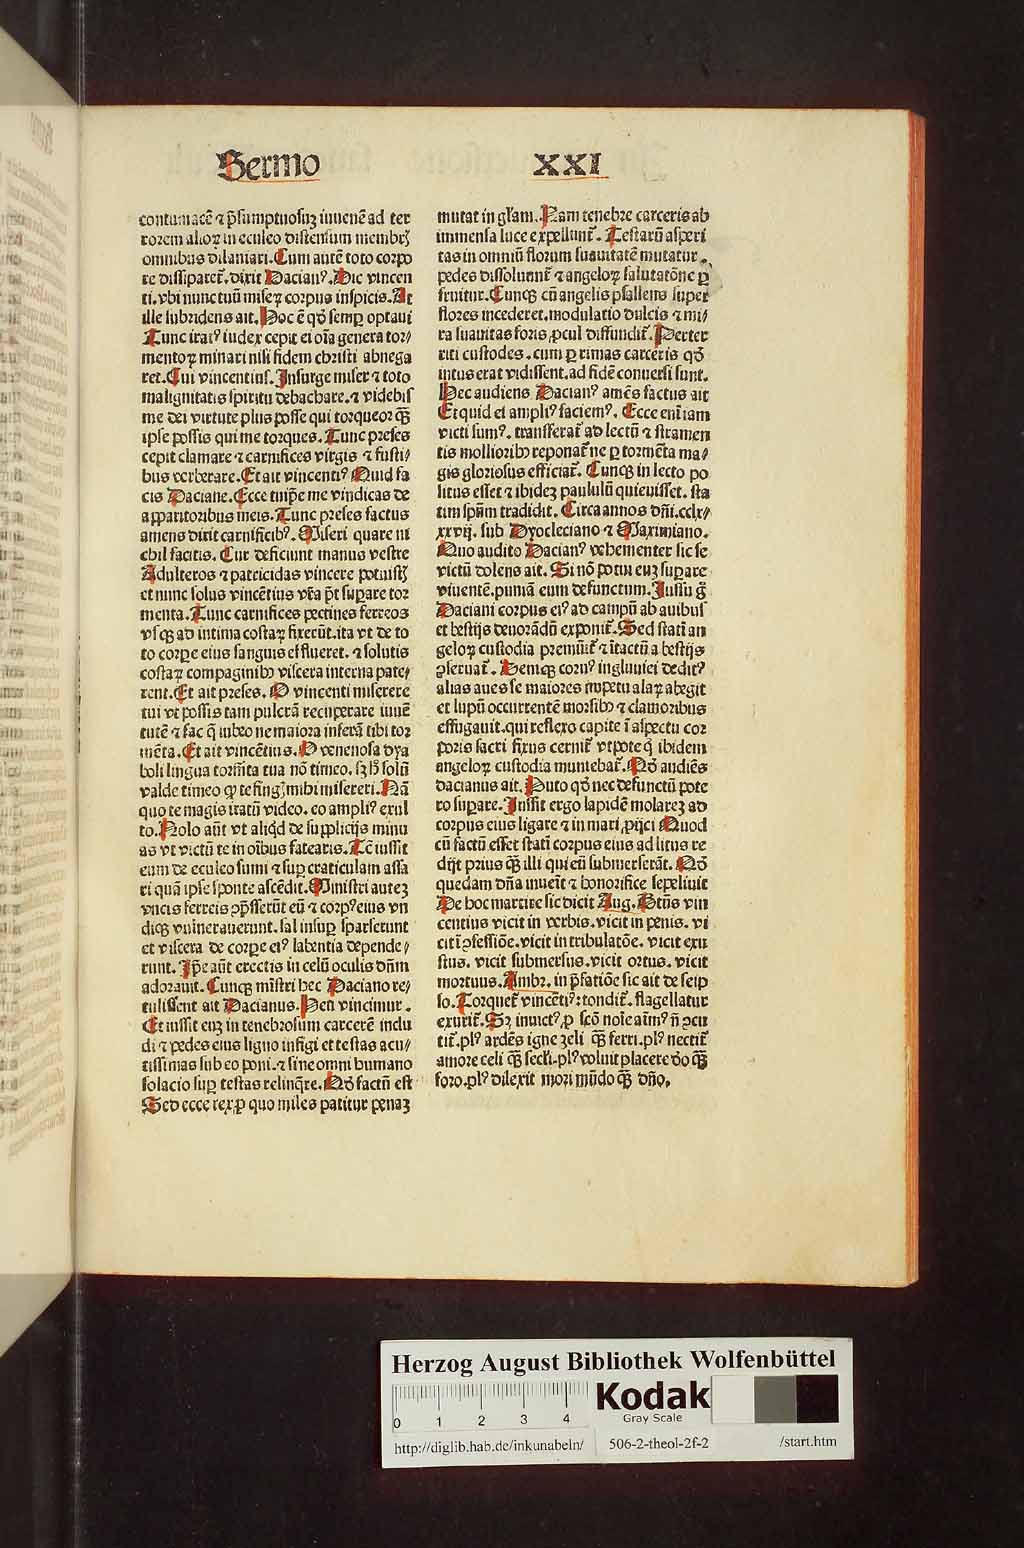 Sermo XXI
contumacē ⁊ p̄sumptuosuȝ iuuenē ad ter
rorem alioꝝ in eculeo distensum membrꝭ
omnibus dilaniari. Cum autē toto corpo
re dissiparet᷑. dixit Dacian⁹. Dic vincen
ti. vbi nunc tuū miseꝝ corpus inspicis. At
ille subridens ait. Hoc ē qd̓ semꝑ optaui
Tunc irat⁹ iudex cepit ei oīa genera tor⸗
mentoꝝ minari nisi fidem christi abnega
ret. Cui vincentius. Insurge miser ⁊ toto
malignitatis spiritu debachare. ⁊ videbis
me dei virtute plus posse qui torqueor qȝ
ipse possis qui me torques. Tunc preses
cepit clamare ⁊ carnifices virgis ⁊ fusti⸗
bus verberare. Et ait vincenti⁹ Quid fa
cis Daciane. Ecce tuip̄e me vindicas de
apparitoribus meis. Tunc preses factus
amens dixit carnificib⁹. Miseri quare ni
chil facitis. Cur deficiunt manus vestre
Adulteros ⁊ patricidas vincere potuistꝭ
et nunc solus vincētius vr̄a pn̄t suꝑare tor
menta. Tunc carnifices pectines ferreos
vsqȝ ad intima costaꝝ fixerūt. ita vt de to
to corpore eius sanguis efflueret. ⁊ solutis
costaꝝ compaginibꝫ viscera interna pate⸗
rent. Et ait preses. O vincenti miserere
tui vt possis tam pulcrā recuperare iuuē
tutē ⁊ hac q̄ iubeo ne maiora inferā tibi tor
mēta. Et ait vincētius. O venenosa dya
boli lingua torm̄ta tua nō timeo. sȝ hꝰ solū
valde timeo qꝫ te fingꝭ mihi misereri. Nā
quo te magis iratū video. eo ampli⁹ exul
to. Nolo aūt vt aliqd de supplicijs minu
as vt victū te in oībus fatearis. Tc̄ iussit
eum de eculeo sumi ⁊ suꝑ craticulam assa
ri quā ipse sponte ascēdit. Ministri auteȝ
vncis ferreis ɔpsserūt eū ⁊ corp⁹ eius vn
diqȝ vulnerauerunt. sal insuꝑ sparserunt
et viscera de corpe ei⁹ labentia depende⸗
runt. Ip̄e aūt erectis in celū oculis dn̄m
adorauit. Cunqȝ mīstri hec Daciano re⸗
tulissent ait Dacianus. Heu vincimur.
Et iussit euȝ in tenebrosum carcerē indu
di ⁊ pedes eius ligno infigi et testas acu⸗
tissimas sub eo poni. ⁊ sine omni humano
solacio suꝑ testas relinq̄re. Qd̓ factū est
Sed ecce rex ꝓ quo miles patitur penaȝ
mutat in gl̄am. Nam tenebre carceris ab
immensa luce expellunt᷑. Testarū asperi
tas in omniū florum suauitatē mutatur.
pedes dissoluunt᷑ ⁊ angeloꝝ salutatōne ꝑ
fruitur. Cunqȝ cū angelis psallens super
flores incederet. modulatio dulcis ⁊ mi⸗
ra suauitas foris ꝓcul diffundit᷑. Perter
riti custodes. cum ꝑ rimas carceris qd̓
intus erat vidissent. ad fidē conuersi sunt.
Hec audiens Dacian⁹ amēs factus ait
Et quid ei ampli⁹ faciem⁹. Ecce eni iam
victi sum⁹. transferat᷑ ad lectū ⁊ stramen
tis mollioribꝫ reponat᷑ ne ꝑ tormēta ma⸗
gis gloriosus efficiat᷑. Cunqȝ in lecto po
situs esset ⁊ ibideȝ paululū quieuisset. sta
tim spm̄ tradidit. Circa annos dn̄i. cclx⸗
xxvij. sub Dyocleciano ⁊ Maximiano.
Quo audito Dacian⁹ vehementer sic se
victū dolens ait. Si nō potui euȝ suꝑare
viuentē. puniā eum defunctum. Iussu g̊
Daciani corpus ei⁹ ad campū ab auibus
et bestijs deuorādū exponit᷑. Sed stati an
geloꝝ custodia premūit᷑ ⁊ ītactū a bestijs
ɔseruat᷑. Deniqȝ coru⁹ ingluuiei dedit⁹
alias aues se maiores impetu alaꝝ abegit
et lupū occurrentē morsibꝫ ⁊ clamoribus
effugauit. qui reflexo capite ī aspectu cor
poris sacri fixus cernit᷑ vtpote q̇ ibidem
angeloꝝ custodia muniebat᷑. Qd̓ audiēs
dacianus ait. Puto qd̓ nec defunctū pote
ro suꝑare. Iussit ergo lapidē molareȝ ad
corpus eius ligare ⁊ in mari ꝓijci Quod
cū factū esset stati corpus eius ad litus re
dijt prius qȝ illi qui eū submerserāt. Qd̓
quedam dn̄a inuēit ⁊ honorifice sepeliuit
De hoc martire sic dicit Aug. Btūs vin
centius vicit in verbis. vicit in penis. vi
cit ī ɔfessiōe. vicit in tribulatōe. vicit exu
stus. vicit submersus. vicit ortus. vicit
mortuus. Ambr. in p̄fatiōe sic ait de seip
so. Torquet᷑ vincēti⁹: tondit᷑. flagellatur
exurit᷑. Sȝ inuict⁹ ꝓ scō noīe aīm⁹ n̄ ɔcu
tit᷑. pl⁹ ardēs igne zeli qȝ ferri. pl⁹ nectit᷑
amore celi qȝ secl̓i. pl⁹ voluit placere deo qȝ
foro. pl⁹ dilexit mori mūdo qȝ dn̄o.
Herzog August Bibliothek Wolfenbüttel
Kodak
Gray Scale
0 1 2 3 4
http://diglib.hab.de/inkunabeln/ 506-2-theol-2f-2 /start.htm